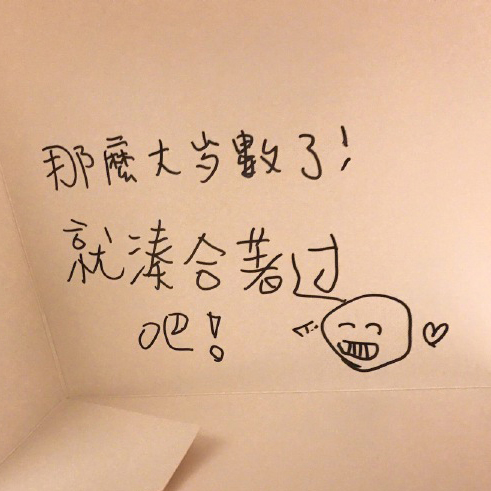 那麼大岁數了!
就湊合著过
吧!